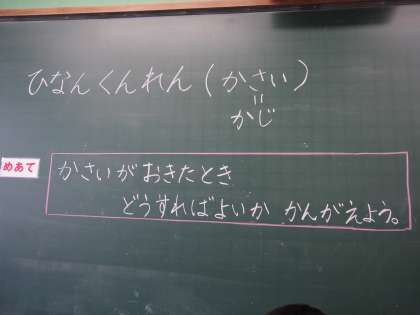 ひなんくんれん（かさい）
〃
かじ
めあて
かさいがおきたとき
どうすればよいか かんがえよう。